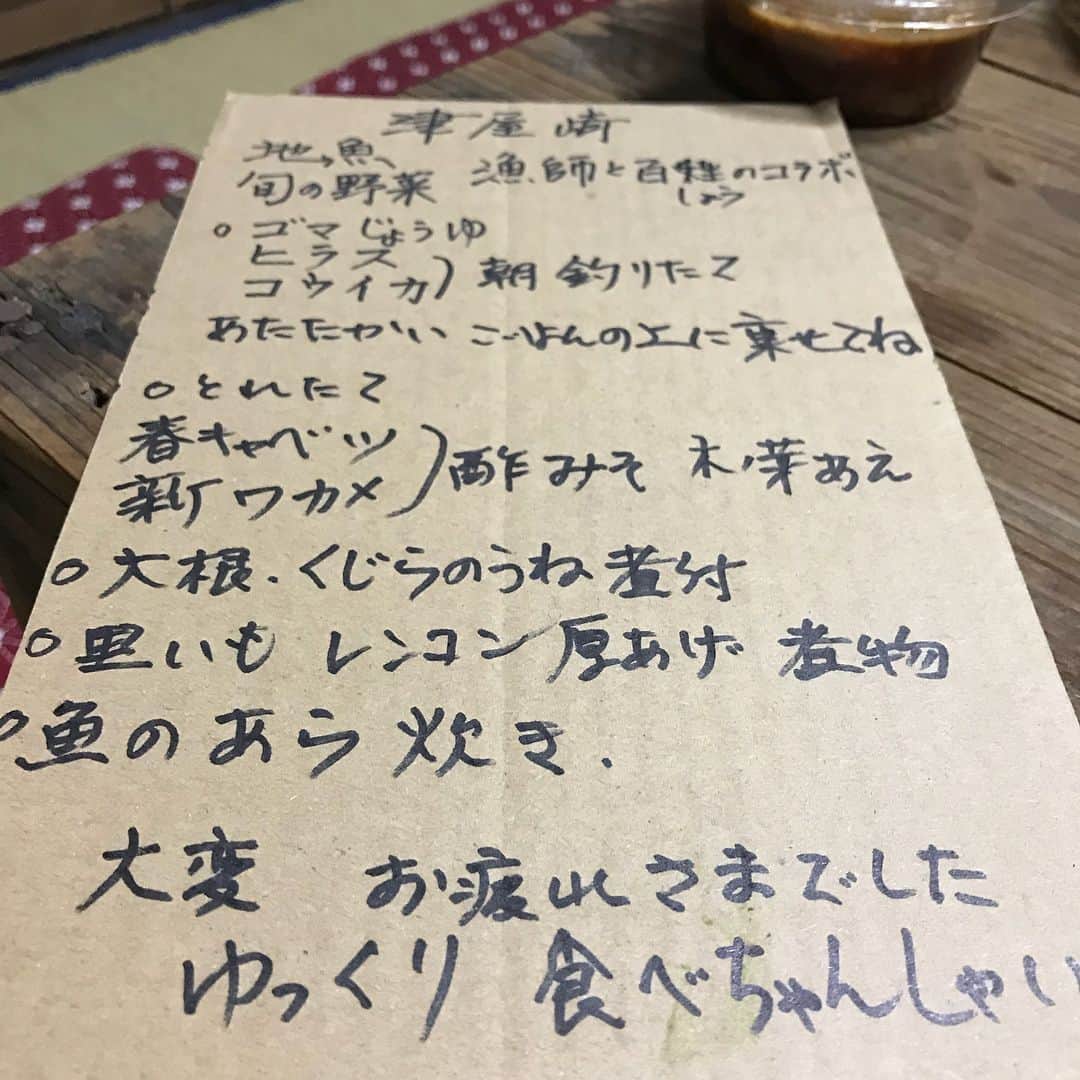 津屋崎
地魚
旬の野菜 漁師と百姓のコラボ
しょう
○ゴマじょうゆ
ヒラス
コウイカ) 朝釣りたて
あたたかい ごはんの上に乗せてね
○とれたて
春キャベツ
新ワカメ) 酢みそ 木ノ芽あえ
○大根.くじらのうね煮付
○里いも レンコン 厚あげ 煮物
○魚のあら炊き.
大変 お疲れさまでした
ゆっくり 食べちゃんしゃい